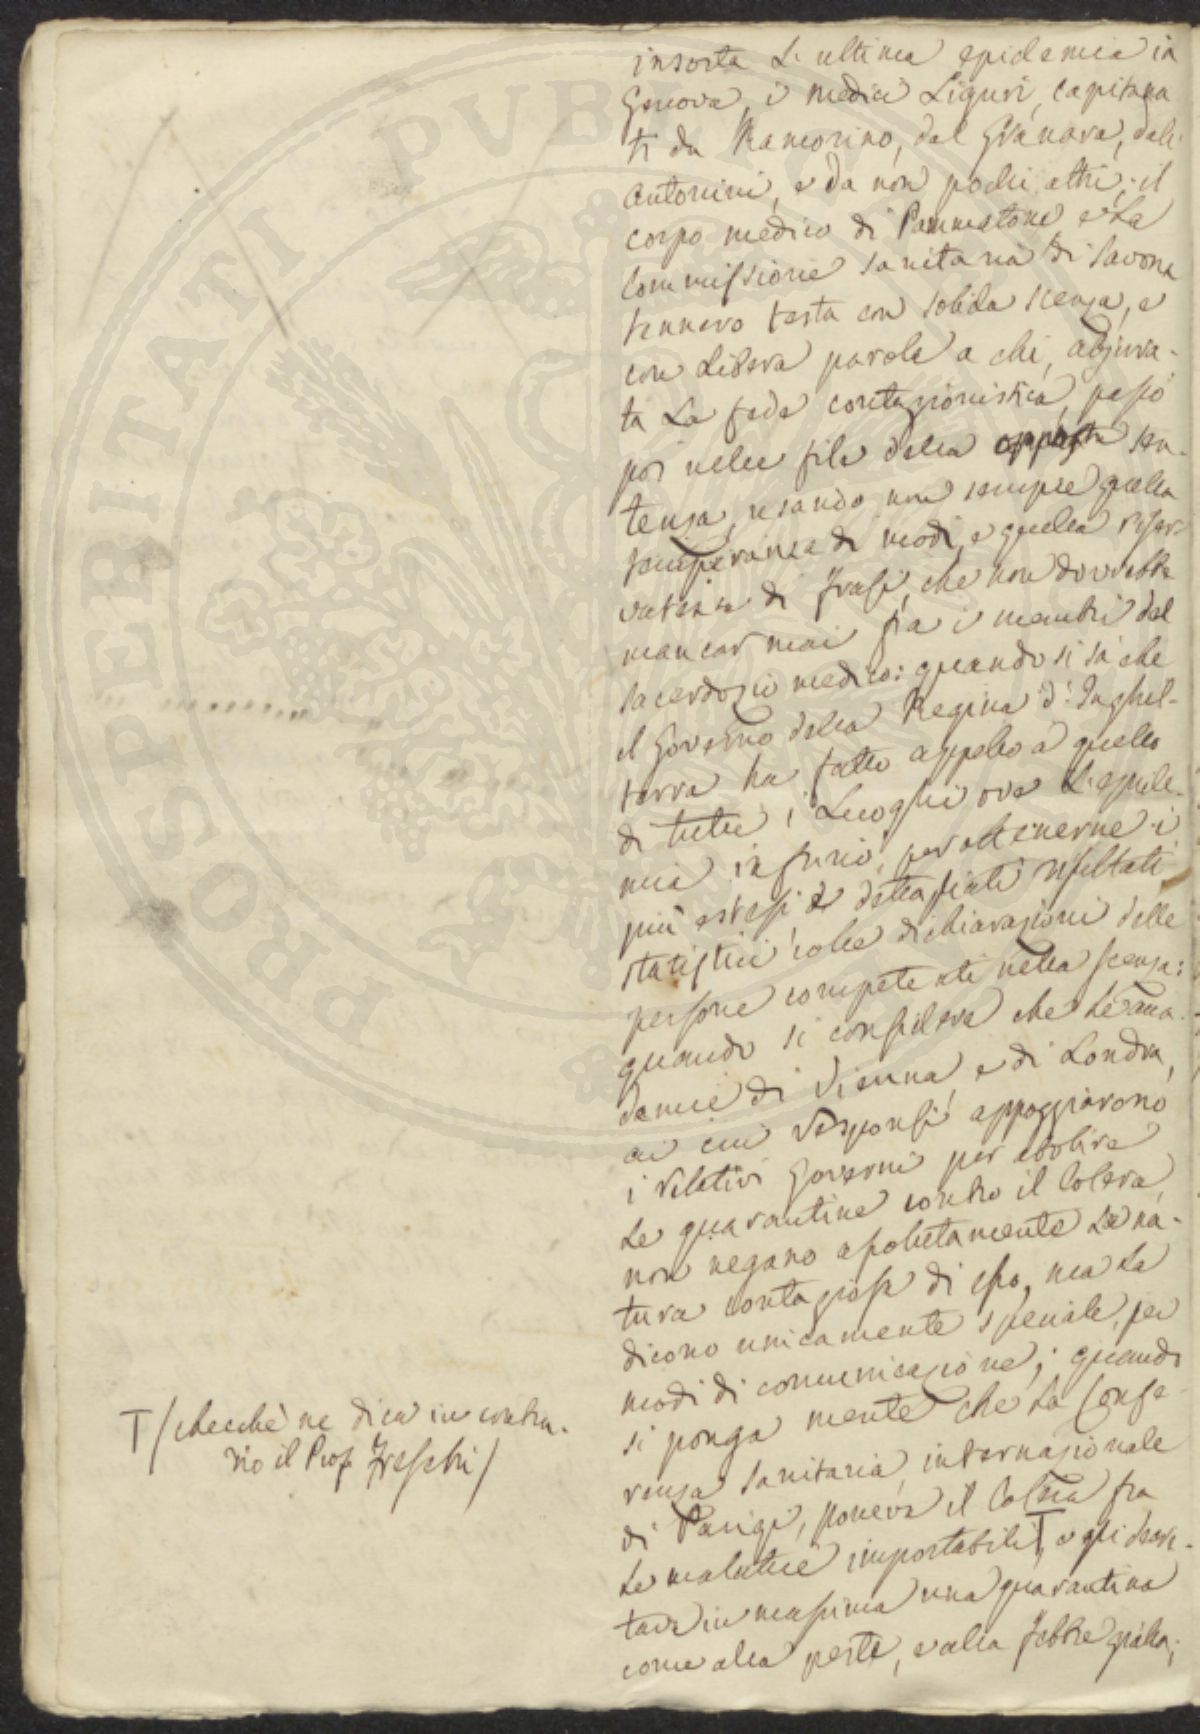 insorta L'ultima epidemia in
Genova, i medici Liguri, capitana
ti da Ramorino, dal Granara, dall'
Antonini, e da non pochi altri; il
corpo medico di Pammatone e La
Commissione sanitaria di Savona
tennero testa con solida scienza, e
con Libera parola a chi, abjura-
ta La fede contagionistica, passò
poi nelle file della opposta sen-
tenza, usando non sempre quella
temperanza di modi, e quella riser-
vatezza di frasi, che non dovrebbe
mancar mai fra i membri del
sacerdozio medico: quando si sà che
il Governo della Regina d'Inghil-
terra ha fatto appello a quello
di tutti i Luoghi ove L'epide-
mia infuriò, per ottenerne i
più estesi e dettagliati risultati
statistici colle dichiarazioni delle
persone competenti nella scienza:
quando si considera che Le acca-
demie di Vienna, e di Londra,
ai cui responsi appoggiarono
i relativi Governi per abolire
Le quarantine contro il Colera,
non negano assolutamente La na-
tura contagiosa di esso, ma La
dicono unicamente speciale, pei
modi di comunicazione; quando
si ponga mente che La Confe-
renza sanitaria internazionale
di Parigi, poneva il Colera fra
Le malattie importabili T, e gli decre-
tava in massima una quarantina
come alla peste, e alla febbre gialla;
T/ checchè ne dica in contra-
rio il Prof. Freschi/
PROSPERITATI PUBLICAE